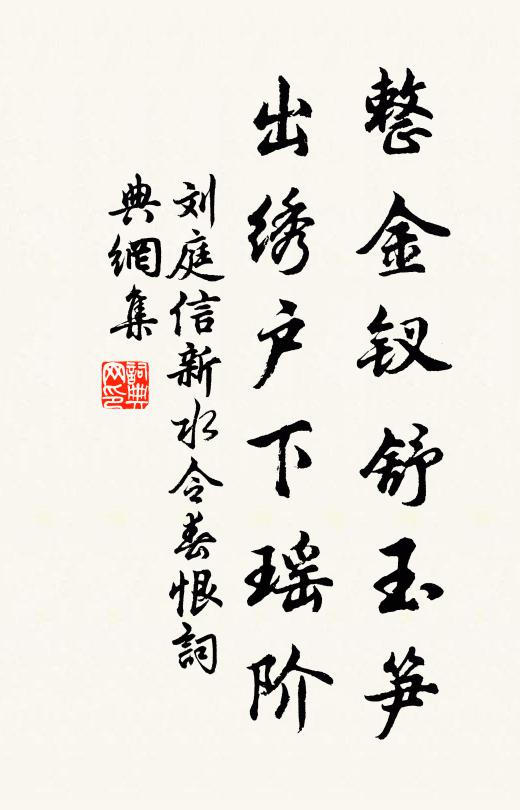 整金钗舒玉笋
出绣户下瑶阶
刘庭信新水令春恨詞
典網集
詞典
网印